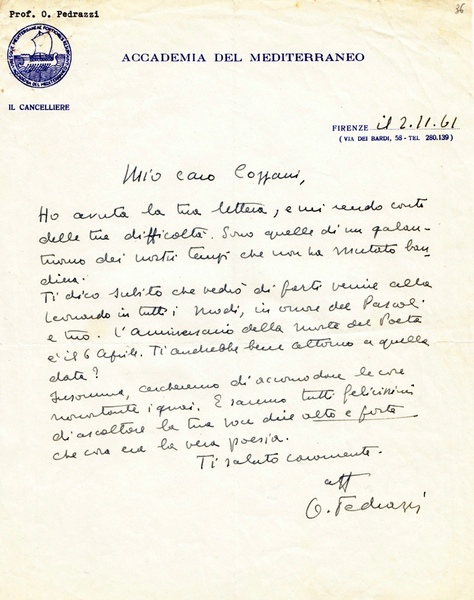 Prof. O. Pedrazzi
36
ACCADEMIA DEL MEDITERRANEO
IL CANCELLIERE
FIRENZE il 2.11.61
(VIA DEI BARDI, 58 - TEL. 280.139)
Mio caro Cozzani,
Ho avuta la tua lettera, e mi rendo conto
delle tue difficoltà. Sono quelle di un galan-
tuomo dei nostri tempi che non ha mutato ban-
diera.
Ti dico subito che vedrò di farti venire alla
Leonardo in tutti i modi, in onore del Pascoli
e tuo. L'Anniversario della morte del Poeta
è il 6 Aprile. Ti andrebbe bene attorno a quella
data?
Insomma, cercheremo di accomodare le cose
nonostante i guai. E saremo tutti felicissimi
di ascoltare la tua voce dire alto e forte
che cosa era la vera poesia.
Ti saluto caramente.
aff
O. Pedrazzi